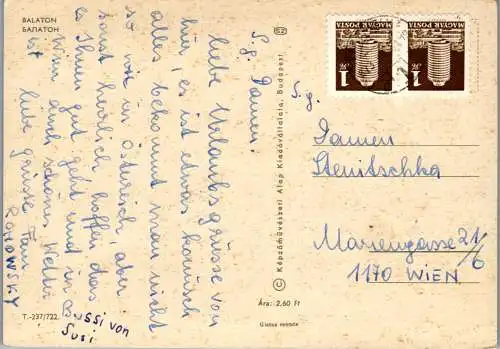 BALATON
БАЛАТОН
S.g. Damen!
liebe Urlaubsgrüsse von
hier, es ist etwas komisch
alles bekommt man nicht
so wie in Österreich, aber
sonst herrlich hoffen dass
es Ihnen gut geht und in
Wien auch schönes Wetter
ist
liebe grüsse Fam.
ROHOWSKY
Bussi von
Susi
T.-237/722.
52
© Képzőművészeti Alap Kiadóvállalata, Budapest
Ára: 2,60 Ft
MAGYAR POSTA
1 Ft
MAGYAR POSTA
1 Ft
S.g.
Damen
Stenitschka
Mariengasse 21/6
1170 WIEN